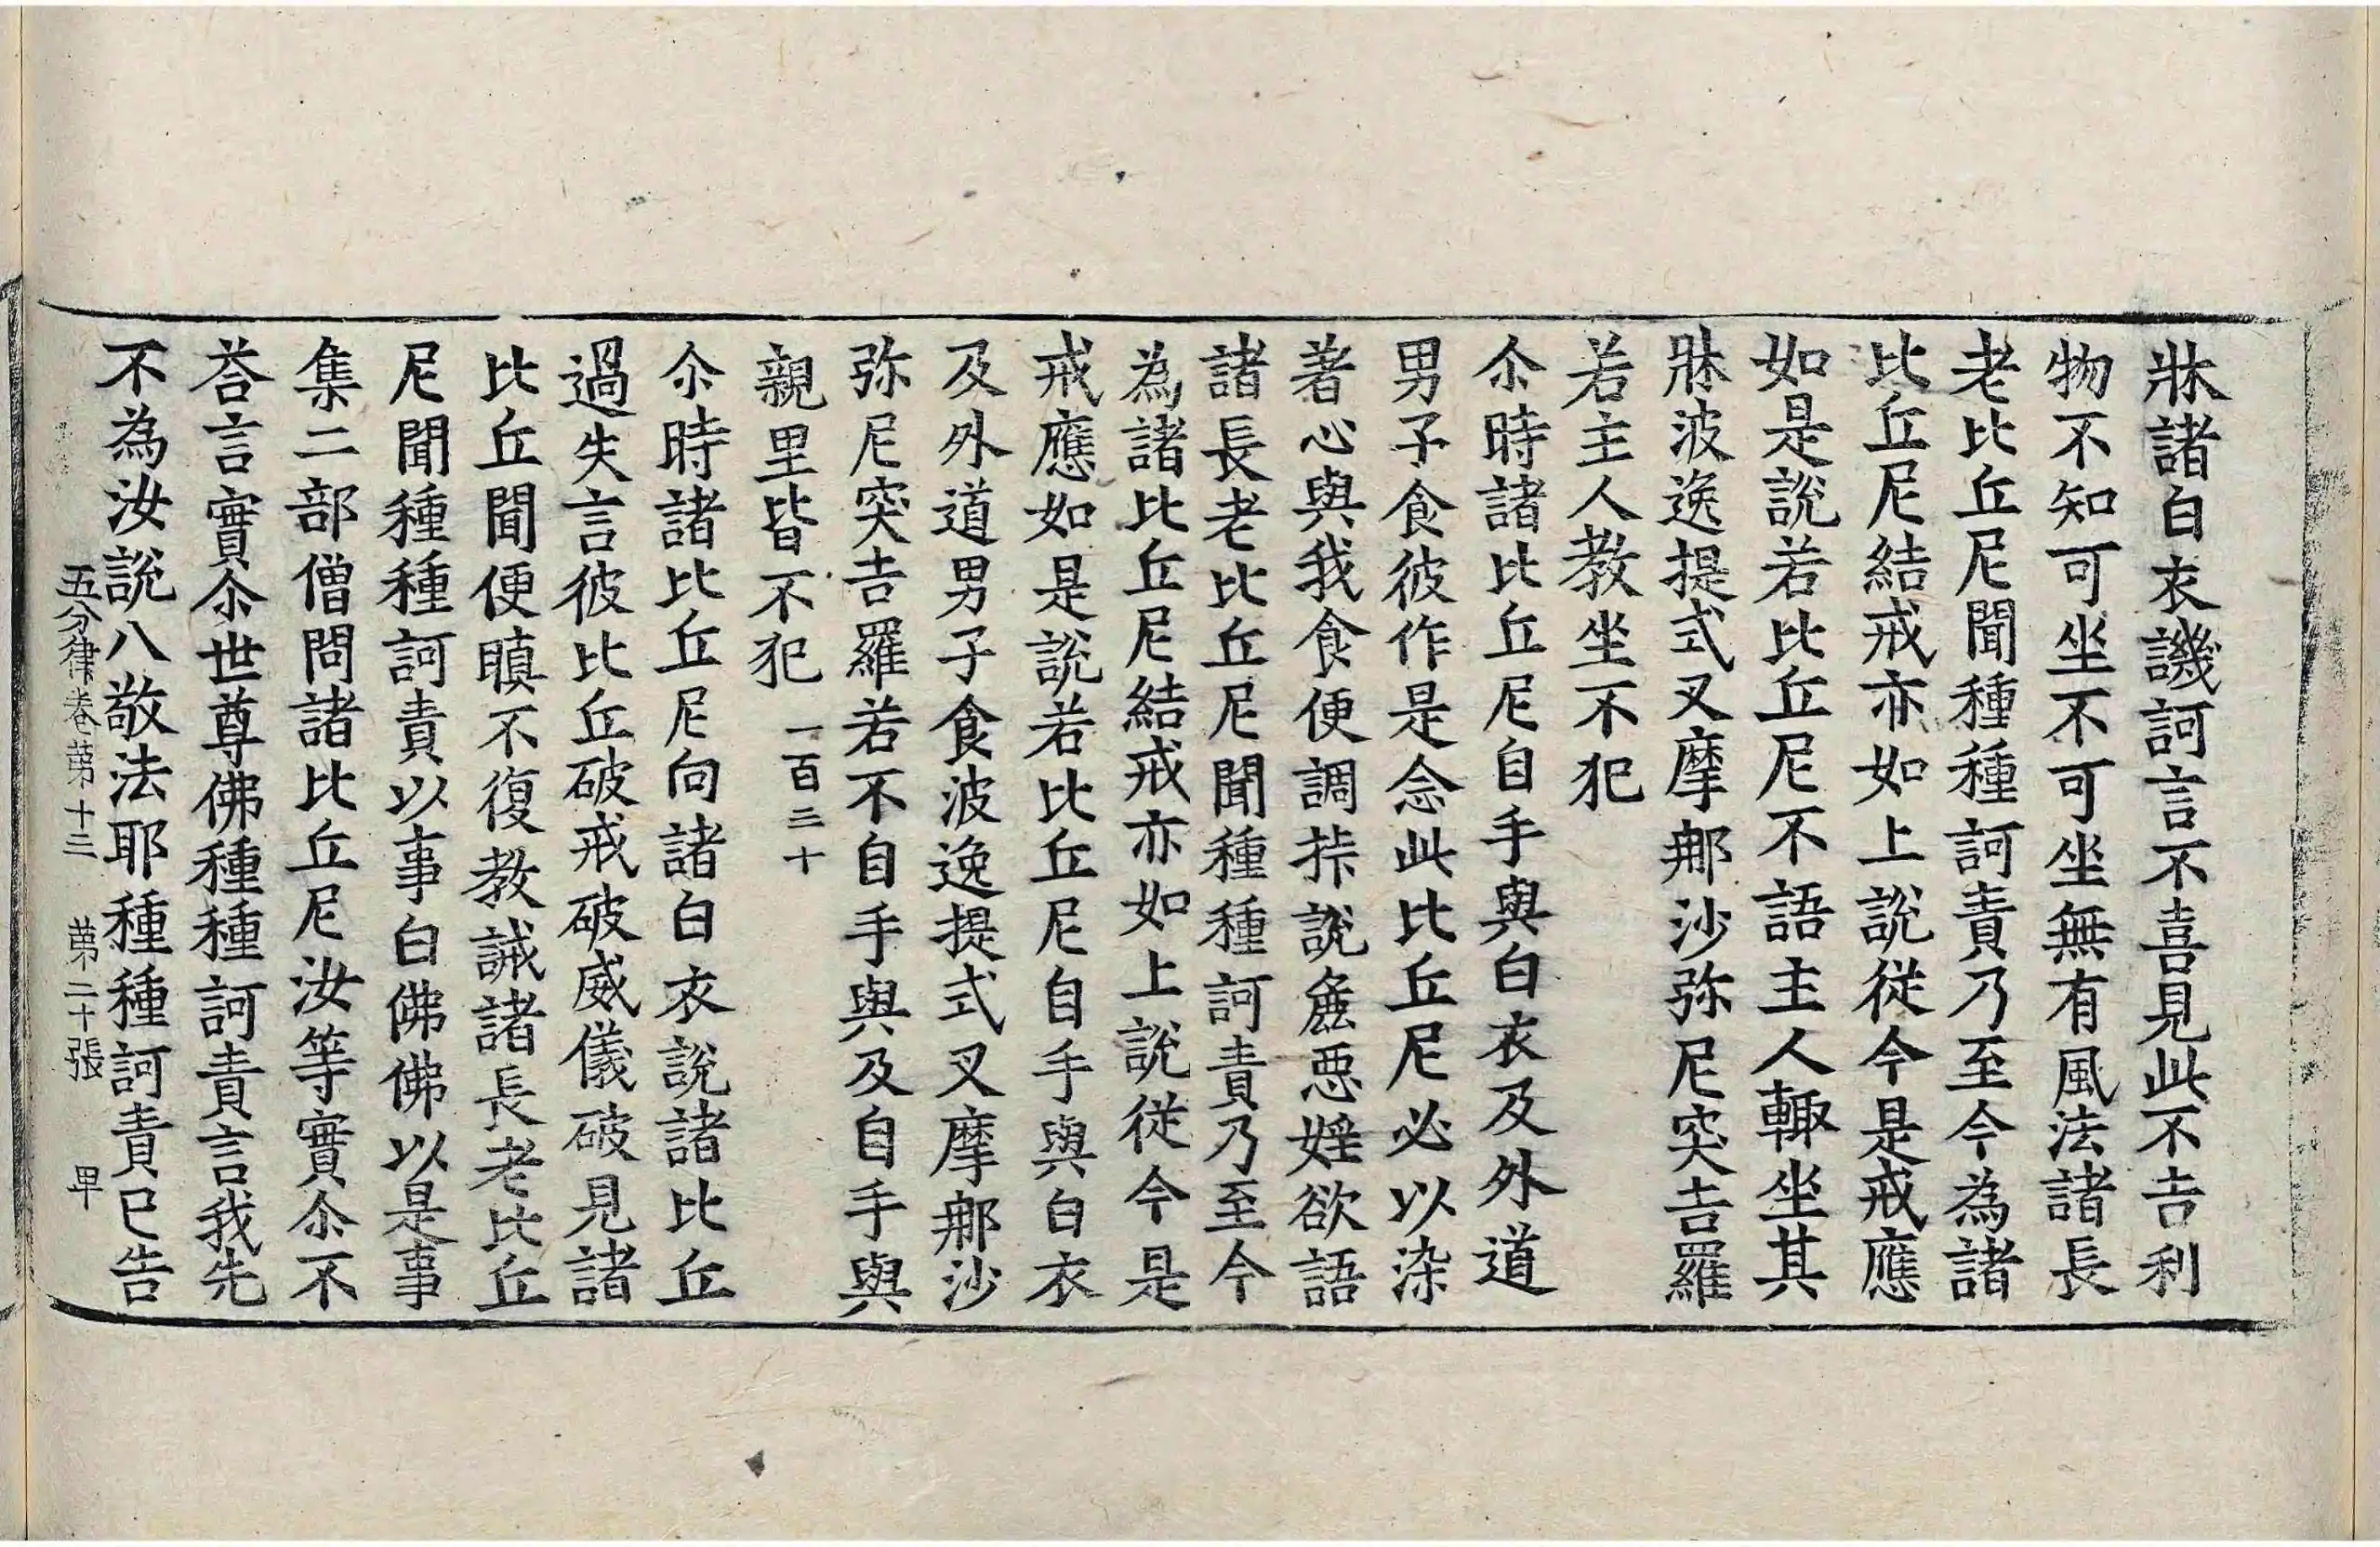 牀諸白衣譏訶言不喜見此不吉利
物不知可坐不可坐無有風法諸長
老比丘尼聞種種訶責乃至今為諸
比丘尼結戒亦如上說從今是戒應
如是說若比丘尼不語主人輙坐其
牀波逸提式叉摩郍沙弥尼突吉羅
若主人教坐不犯
尒時諸比丘尼自手與白衣及外道
男子食彼作是念此比丘尼必以染
著心與我食便調㧊說麁惡婬欲語
諸長老比丘尼聞種種訶責乃至今
為諸比丘尼結戒亦如上說從今是
戒應如是說若比丘尼自手與白衣
及外道男子食波逸提式叉摩郍沙
弥尼突吉羅若不自手與及自手與
親里皆不犯 一百三十
尒時諸比丘尼向諸白衣說諸比丘
過失言彼比丘破戒破威儀破見諸
比丘聞便瞋不復教誡諸長老比丘
尼聞種種訶責以事白佛佛以是事
集二部僧問諸比丘尼汝等實尒不
荅言實尒世尊佛種種訶責言我先
不為汝說八敬法耶種種訶責已告
五分律卷第十三 第二十張